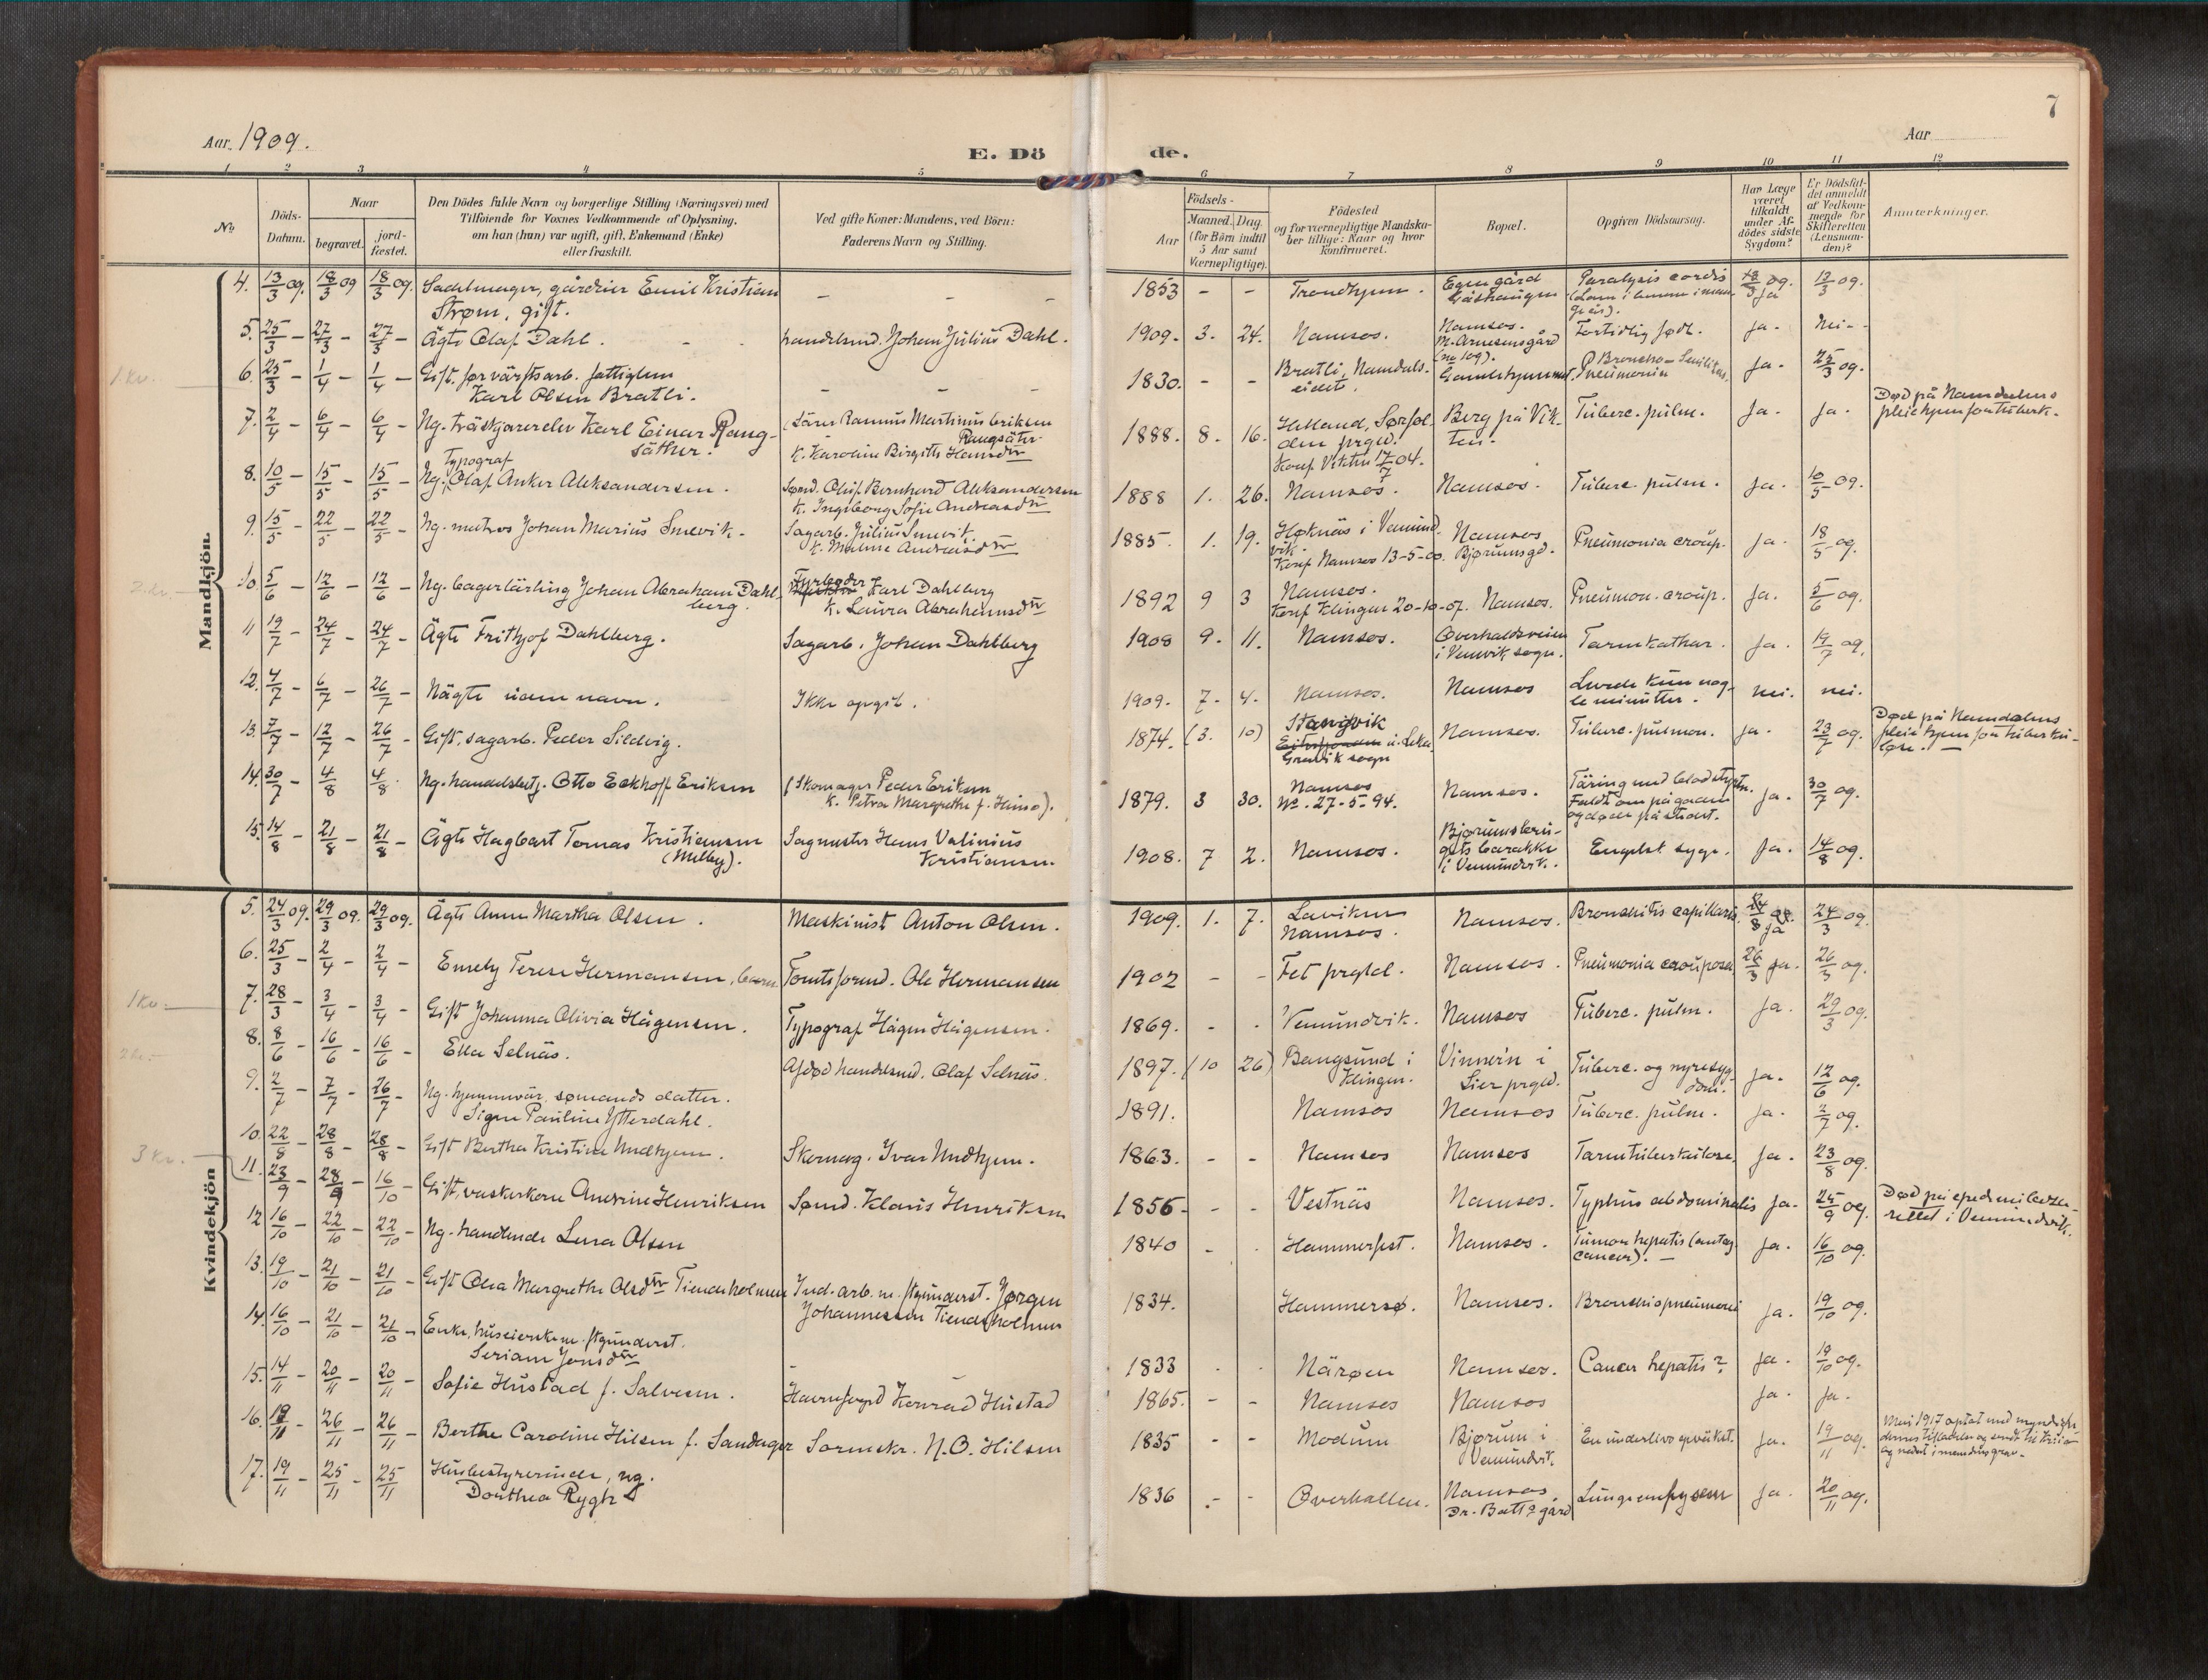 7
Aar 1909.
Aar
E. Dö de.
1 2 3 4 5 6 7 8 9 10 11 12
No
Döds-Datum.
Naar
begravet. jord-fæstet.
Den Dödes fulde Navn og borgerlige Stilling (Næringsvei) med
Tilføiende for Voxnes Vedkommende af Oplysning,
om han (hun) var ugift, gift, Enkemand (Enke)
eller fraskilt.
Ved gifte Koner: Mandens, ved Börn:
Faderens Navn og Stilling.
Födsels-
Aar
Maaned. Dag.
(for Börn indtil
5 Aar samt
Værnepligtige).
Födested
og for værnepligtige Mandska-
ber tillige: Naar og hvor
konfirmeret.
Bopæl.
Opgiven Dödsaarsag.
Har Læge
været
tilkaldt
under Af-
dödes sidste
Sygdom?
Er Dödsfal-
det anmeldt
af Vedkom-
mende for
Skifteretten
(Lensman-
den)?
Anmærkninger.
Mandkjön.
4. 13/3 09. 18/3 09 18/3 09. Sadelmager, gårdeier Emil Kristian
Strøm, gift. 1853 - - Trondhjem. Egen gård Paralysis cordis 12/3 09.
5. 25/3 - 27/3 - 27/3 - Ägte Olaf Dahl. handelsmd. Johan Julius Dahl. 1909. 3. 24. Namsos. Namsos.
M. Arnesens gård
(no 109). Fortidlig født. ja. nei -
1 kv.
6. 25/3 - 1/4 - 1/4 - Gift, før värftsarb. fattiglem
Karl Olsen Bratli. 1830. - - Bratli, Namdals-
eidet. Gamlehjemmet. Broncho-
Pneumonia Ja. 25/3 09.
7. 2/4 - 6/4 - 6/4 - Ug. Karl Einar Rang-
säther. Rasmus Martinus Eriksen
Rangsäter
k. Karoline Birgitte Hansdtr 1888. 8. 16. Sørfol-
den prgld.
Konf. Vikten 17/7 04. Berg på Vik-
ten. Tuberc. pulm. Ja. ja. Død på Namdalens
pleiehjem for tuberk.
8. 10/5 - 15/5 - 15/5 - Typograf
Ug. Olaf Anker Aleksandersen. Sømd. Oluf Bernhard Aleksandersen
k. Ingeborg Sofie Andreasdtr 1888 1. 26. Namsos. Namsos. Tuberc. pulm. ja. 10/5 09.
9. 15/5 - 22/5 - 22/5 - Ug. matros Johan Marius Smevik. Sagarb. Julius Smevik
k. Maline Andreasdtr 1885. 1. 19. Høknäs i Vemund-
vik.
Konf Namsos 13-5-00. Namsos
Bjørumsgd. Pneumonia croup. ja. 18/5 09.
2 kv.
10. 5/6 - 12/6 - 12/6 - Ug. bagerlärling Johan Abraham Dahl-
berg. Fyrbøder Karl Dahlberg
k. Laura Abrahamsdtr 1892 9 3 Namsos.
Konf Klingen 20-10-07. Namsos. Pneumon. croup. Ja. 5/6 09.
11 19/7 - 24/7 - 24/7 - Ägte Frithjof Dahlberg. Sagarb. Johan Dahlberg 1908 9. 11. Namsos. Overhaldsveien
i Vemvik sogn. Tarmkathar. Ja. 19/7 09.
12. 4/7 - 6/7 - 26/7 - Uägte uden navn. Ikke opgit. 1909. 7. 4. Namsos. Namsos Levede kun nog-
le minutter. nei. nei.
13. 7/7 - 12/7 - 26/7 - Gift, sagarb. Peder Sildvig. 1874. (3. 10) Stangvik
i Leka
Gravik sogn Namsos. Tuberc. pulmon. ja. 23/7 09. Død på Namdalens
pleiehjem for tuberku-
løse. -
14. 30/7 - 4/8 4/8. Ug. handelsbetj. Otto Eckhoff Eriksen (Skomager Peder Eriksen
k. Petra Margrethe f. Heinø). 1879. 3 30. Namsos
No. 27-5-94. Namsos. Täring med blodstyrtn.
Faldt om på gaden
og døde på stedet. ja. 30/7 09.
15. 14/8 - 21/8 - 21/8 - Ägte Hagbart Tomas Kristiansen
(Melby). Sagmester Hans Valinius
Kristiansen. 1908. 7 2. Namsos. i Vemundvik. Engelsk syge. Ja. 14/8 09.
Kvindekjön
5. 24/3 09. 29/3 09. 29/3 09. Ägte Anna Martha Olsen. Maskinist Anton Olsen. 1909. 1. 7. Laviken
Namsos. Namsos. Bronchitis capillaris. ja 24/3 09.
6. 25/3 - 2/4 - 2/4 - Emely Terese Hermansen, barn Tomtsformd. Ole Hermansen 1902 - - Fet prgld. Namsos. Pneumonia crouposa 26/3 ja. 26/3 09.
1 kv.
7. 28/3 - 3/4 - 3/4 - Gift Johanna Olivia Hågensen. Typograf Hågen Hågensen. 1869. - - Vemundvik. Namsos Tuberc. pulm. Ja 29/3 09.
2 kv.
8. 8/6 - 16/6 - 16/6 - Ella Selnäs. Afdød handelsmd. Olaf Selnäs. 1897. (10 26) Bangsund i
Klingen. Vinnern i
Lier prgld. Tuberc. og nyresyg-
dom. ja. 12/6 09.
9. 2/7 - 7/7 - 26/7 - Ug. hjemmevär. sømands datter.
Signe Pauline Ytterdahl. 1891. Namsos Namsos Tuberc. pulm. ja. 2/7 09.
3 kv.
10. 22/8 - 28/8 - 28/8 - Gift Bertha Kristine Midhjem. Skomag. Ivar Midhjem. 1863. - - Namsos Namsos Tarmtuberkulose. Ja. 23/8 09.
11. 23/9 - 28/9 - 16/10 - Gift, vaskerkone Andrine Henriksen Sømd. Klaus Henriksen 1856 - - - Vestnäs Namsos. Typhus abdominalis Ja. 25/9 09. Død på epedemilaza-
rettet i Vemundvik.
12 16/10 - 22/10 - 22/10 - Ug. handlende Lena Olsen 1840 - - Hammerfest. Namsos. Tumor hepatis (antag.
cancer). - ja. 16/10 09.
13. 19/10 - 21/10 - 21/10 - Gift Olea Margrethe Olsdtr Tiendeholmen Ind. arb. m. ftgunderst. Jørgen
Johannessen Tiendeholmen 1834. Hammersø. Namsos. Bronchiopneumoni ja. 19/10 09.
14. 16/10 - 21/10 - 21/10 - Enke, huseierske m. ftgunderst.
Seriane Jonsdtr 1833 - - Närøen Namsos. Cancer hepatis? Ja. 19/10 09.
15. 14/11 - 20/11 - 20/11 - Sofie Hustad f. Salvesen. Havnefogd Konrad Hustad 1865. - - Namsos Namsos ja. Ja.
16. 19/11 - 26/11 - 26/11 - Berthe Caroline Hilsen f. Sandager Sorenskr. N.O. Hilsen 1835 - - Modum Bjørum i
Vemundvik. ja. 19/11 09. Mai 1917 optat med myndighe-
dernes tilladelse og sendt til Kr.ia
og nedsat i mandens grav.
17. 19/11 - 25/11 - 25/11 - Husbestyrerinde, ug.
Dorthea Rygh 1836 - - Overhallen. Namsos.
gård Lungeemfysem Ja. 20/11 09.